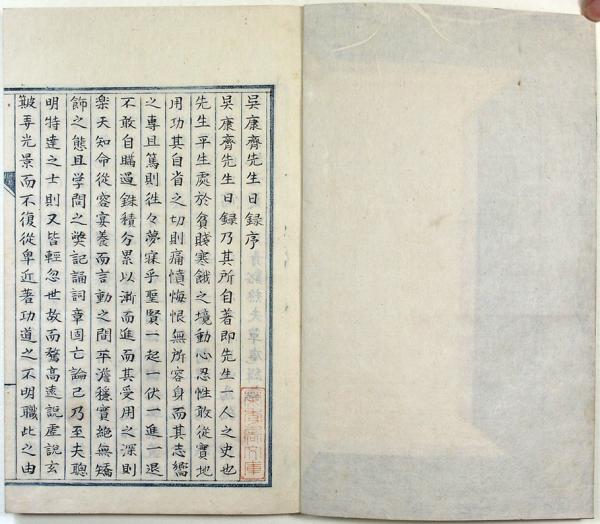 吳康齋先生日録序
吳康齋先生日録乃其所自著即先生一人之史也
先生平生處於貧賤寒餓之境動心忍性敢從實地
用功其自省之切則痛憤悔恨無所容身而其志嚮
之專且篤則徃々夢寐乎聖賢一起一伏一進一退
不敢自瞞過銖積分累以漸而進而其受用之深則
樂天知命從容宴養而言動之間平澹穩實絶無矯
飾之態且學問之奬記誦詞章固亡論已乃至夫聰
明特達之士則又皆輕忽世故而騖高遠説虛説玄
簸弄光景而不復從卑近著功道之不明職此之由